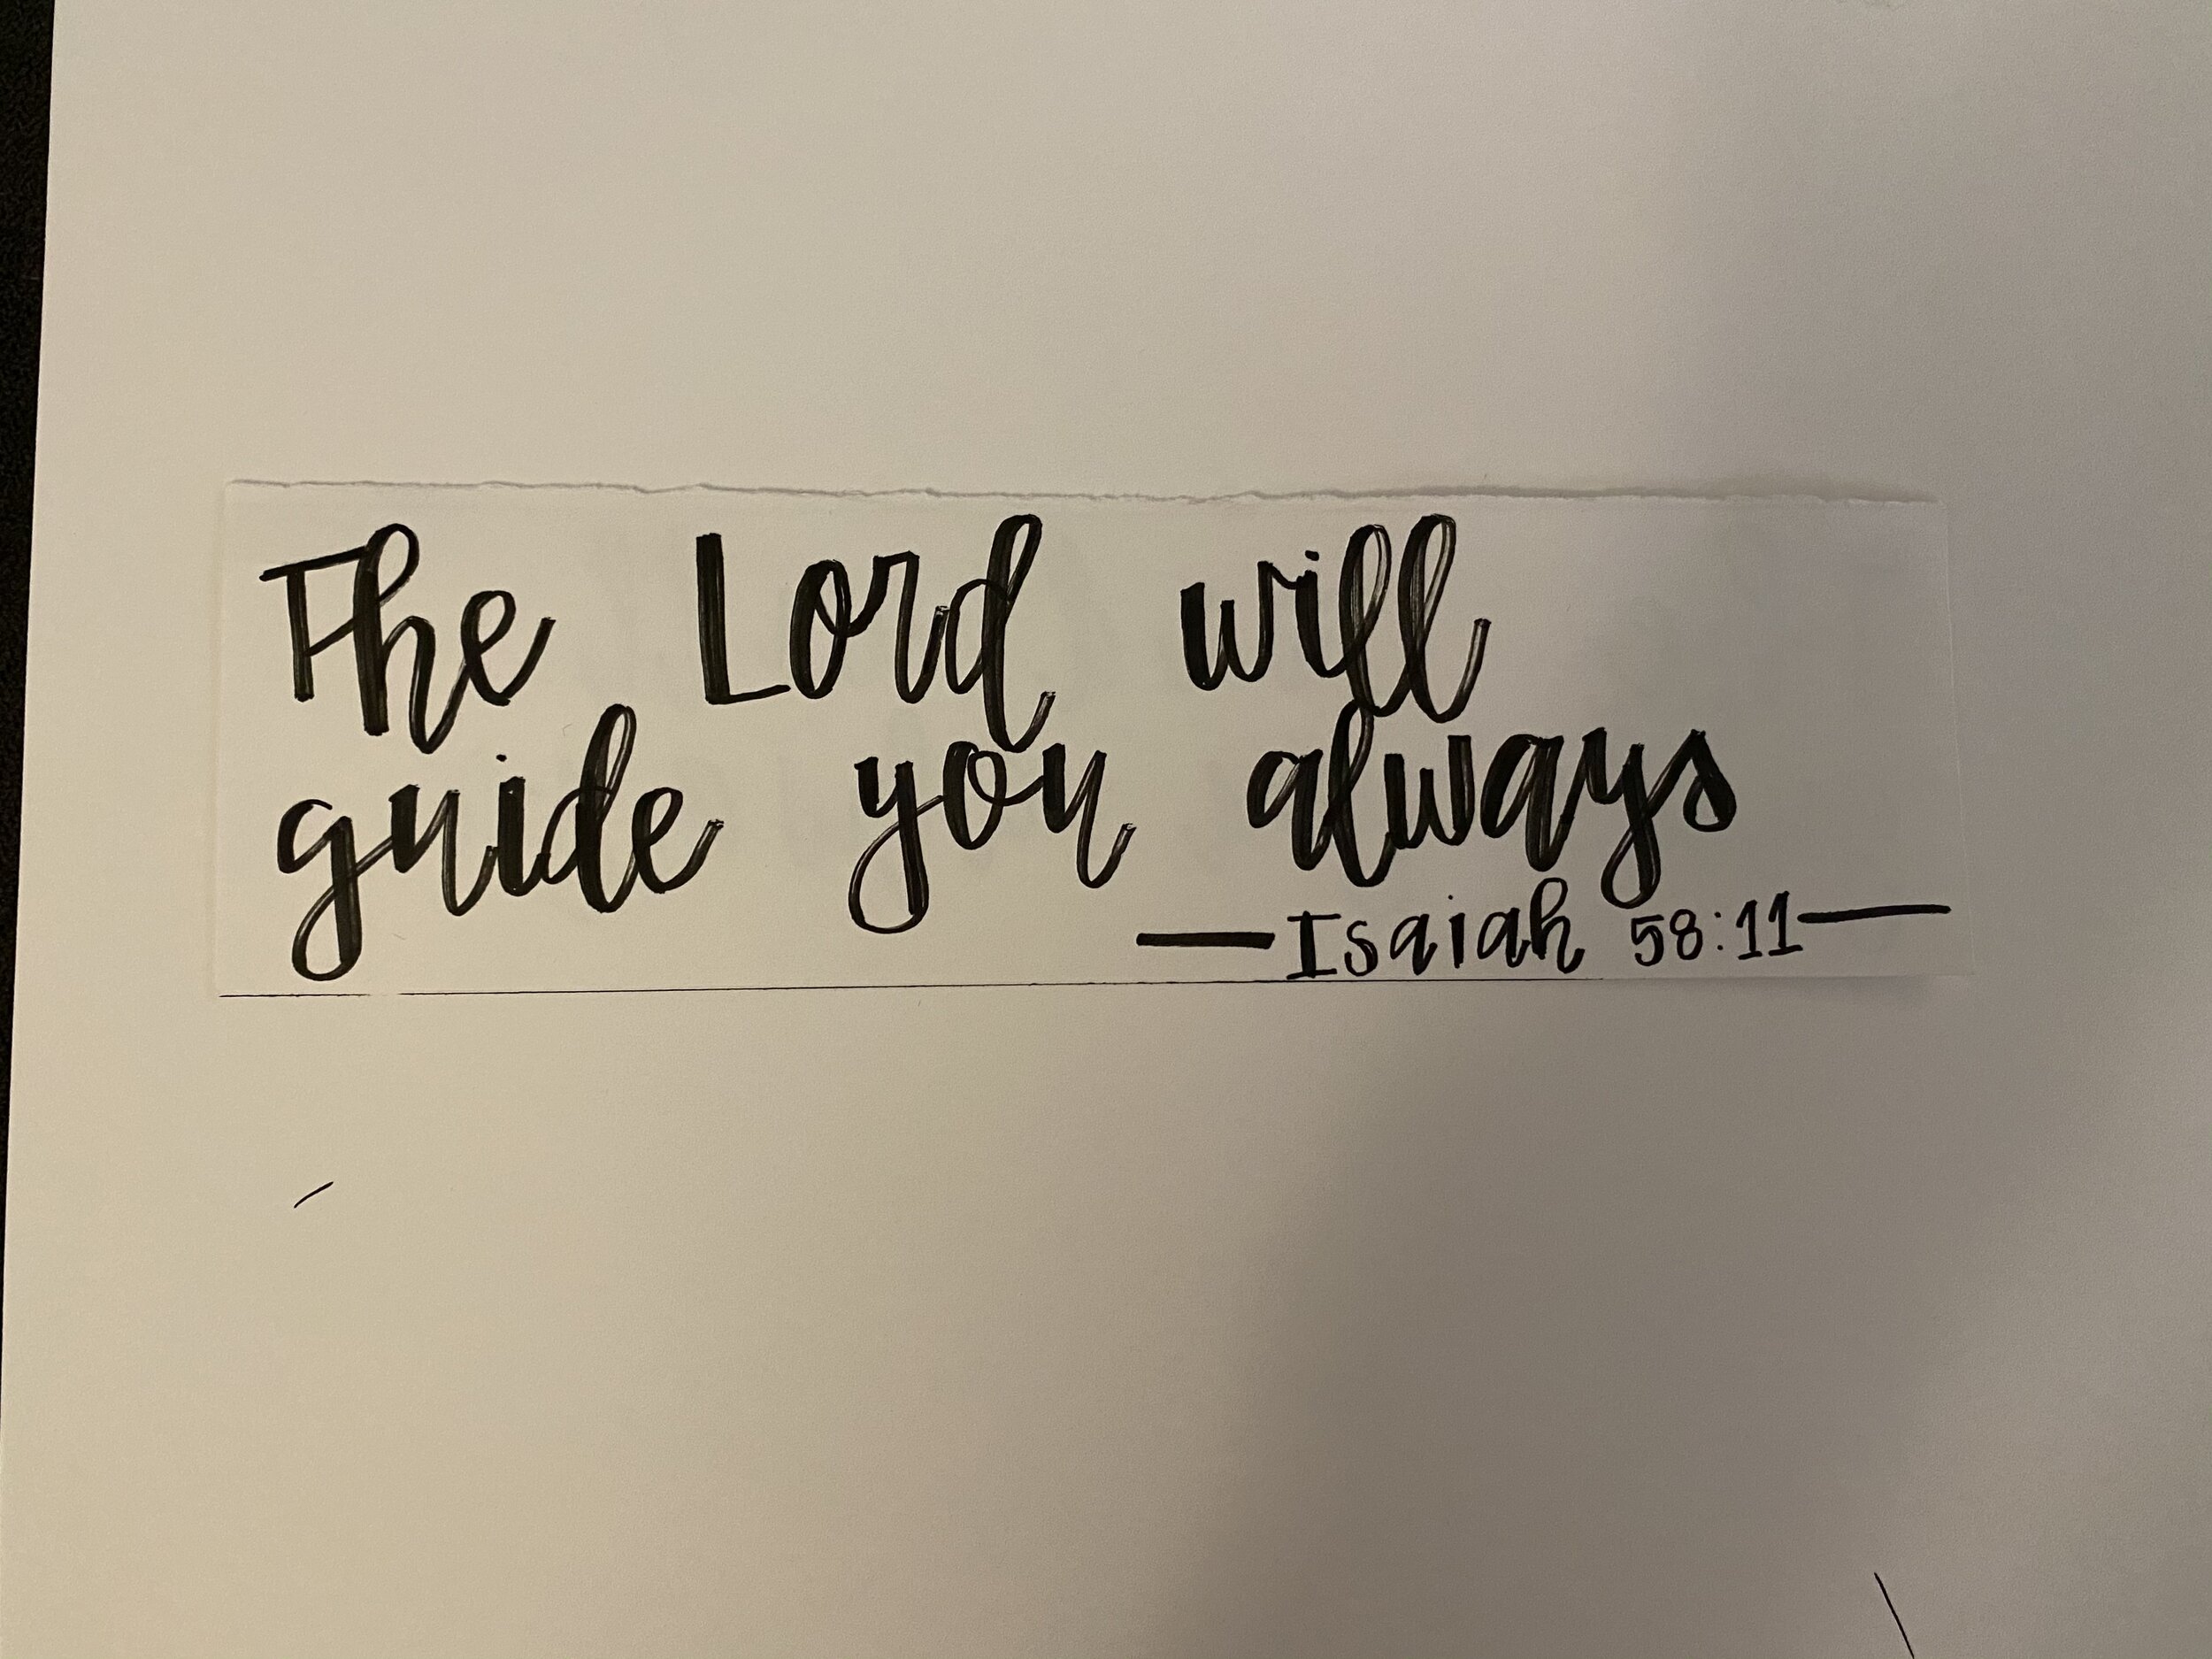 The Lord will
guide you always
—Isaiah 58:11—